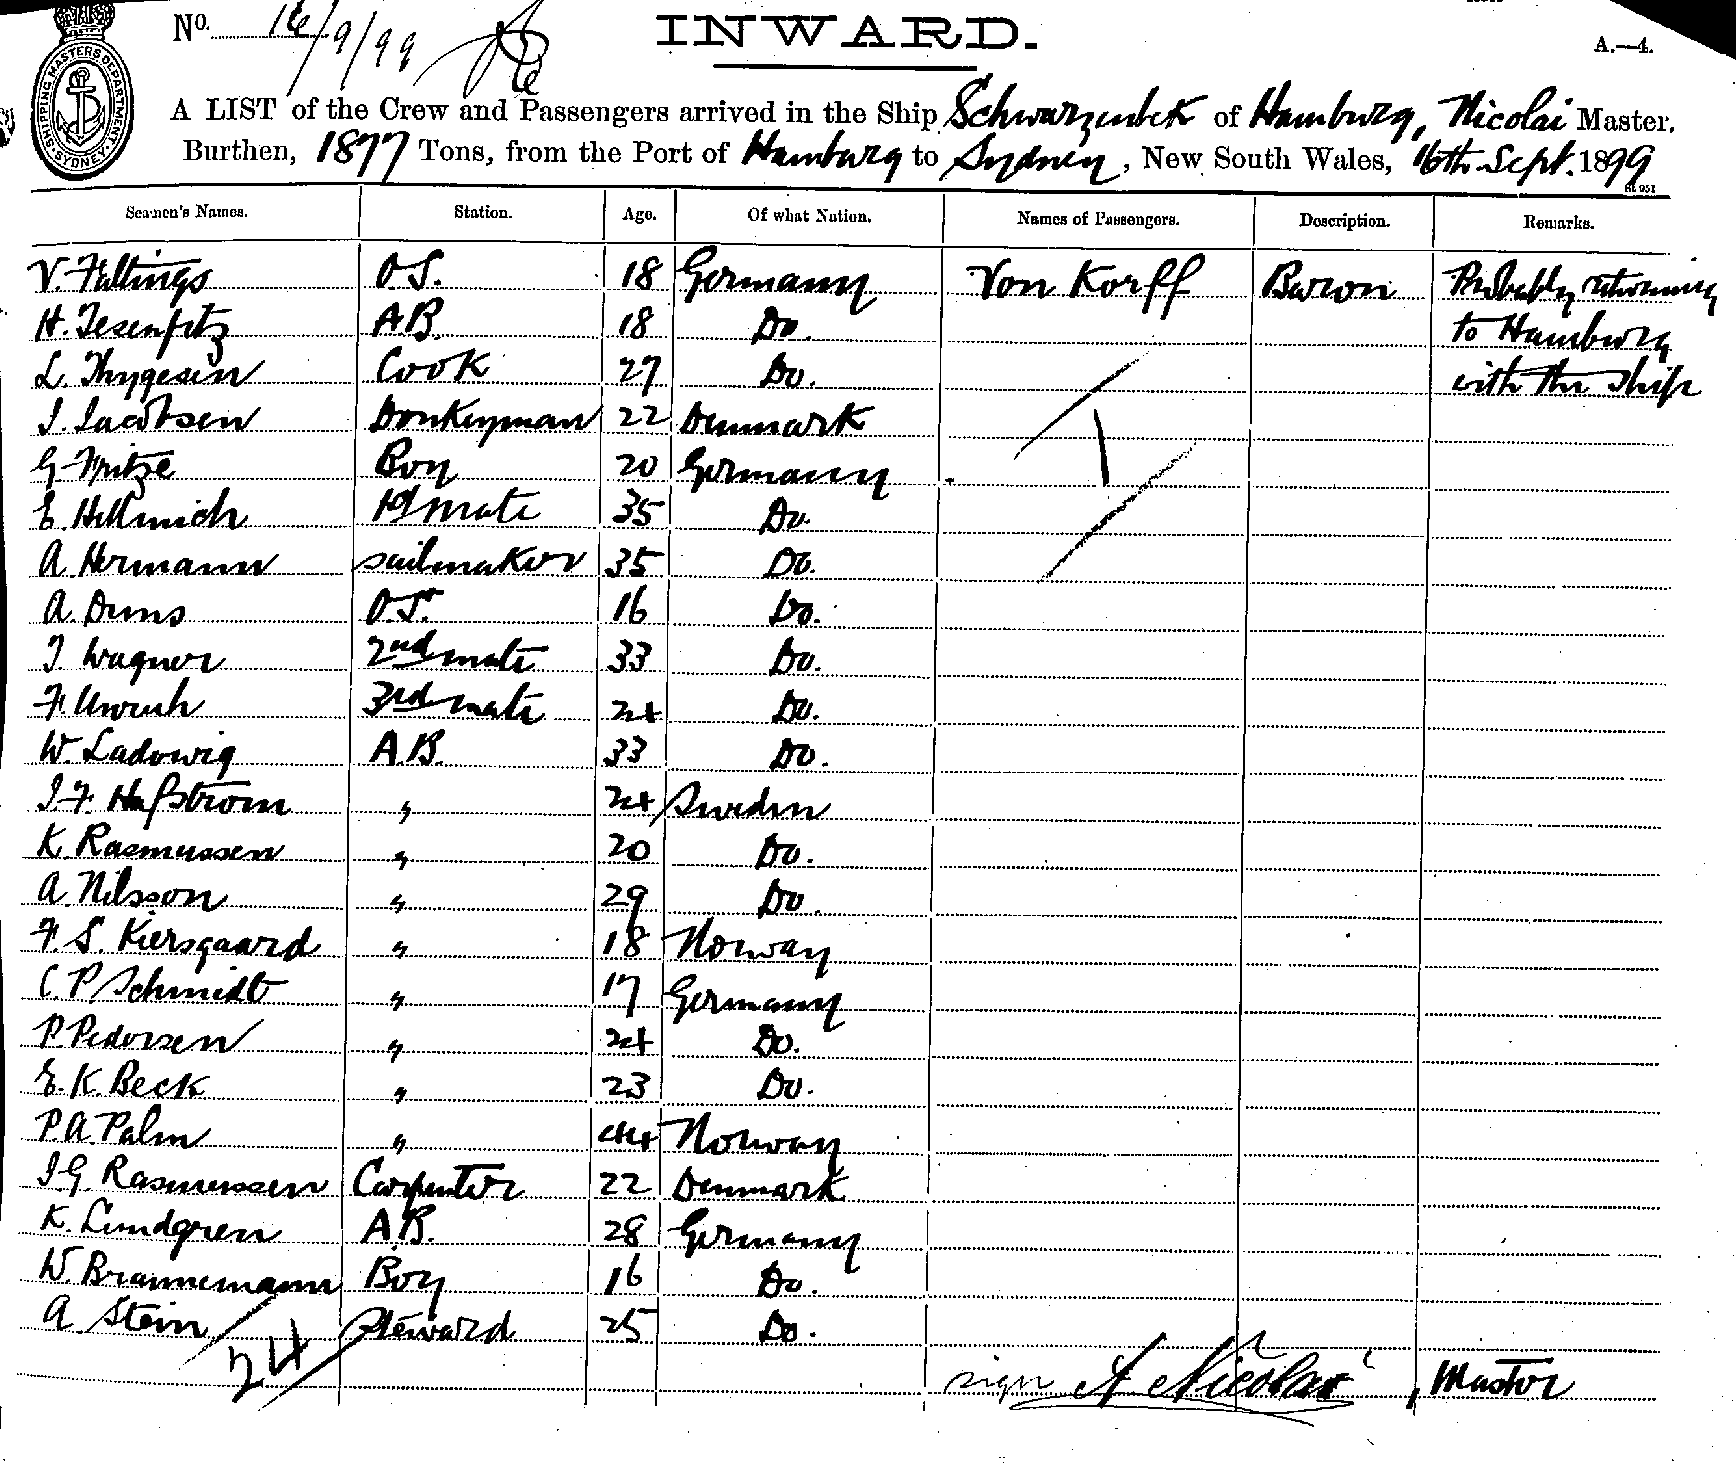 No. 16/9/99
INWARD.
A.—4.
SHIPPING MASTERS DEPARTMENT SYDNEY
A LIST of the Crew and Passengers arrived in the Ship Schwarzenbek of Hamburg, Nicolai Master,
Burthen, 1877 Tons, from the Port of Hamburg to Sydney, New South Wales, 16th Sept. 1899
Seamen's Names. Station. Age. Of what Nation. Names of Passengers. Description. Remarks.
V. Faltings O.S. 18 Germany Von Korff Baron Probably returning
H. Tesenfitz A.B. 18 Do. to Hamburg
L. Thygesen Cook 27 Do. with the ship
J. Jacobsen Donkeyman 22 Denmark
G. Fritze Boy 20 Germany
E. Hellmich 1st mate 35 Do.
A. Hermann sailmaker 35 Do.
A. Duns O.S. 16 Do.
J. Wagner 2nd mate 33 Do.
F. Unruh 3rd mate 24 Do.
W. Ladowig A.B. 33 Do.
J. F. Hafstrom " 24 Sweden
K. Rasmussen " 20 Do.
A. Nilsson " 29 Do.
F. S. Kiersgaard " 18 Norway
C. P. Schmidt " 17 Germany
P. Pedersen " 24 Do.
E. K. Beck " 23 Do.
P. A. Palm " 44 Norway
J. G. Rasmussen Carpenter 22 Denmark
K. Lundgren A.B. 28 Germany
W. Brannemann Boy 16 Do.
A. Stein Steward 25 Do.
24
sign A Nicolai, Master